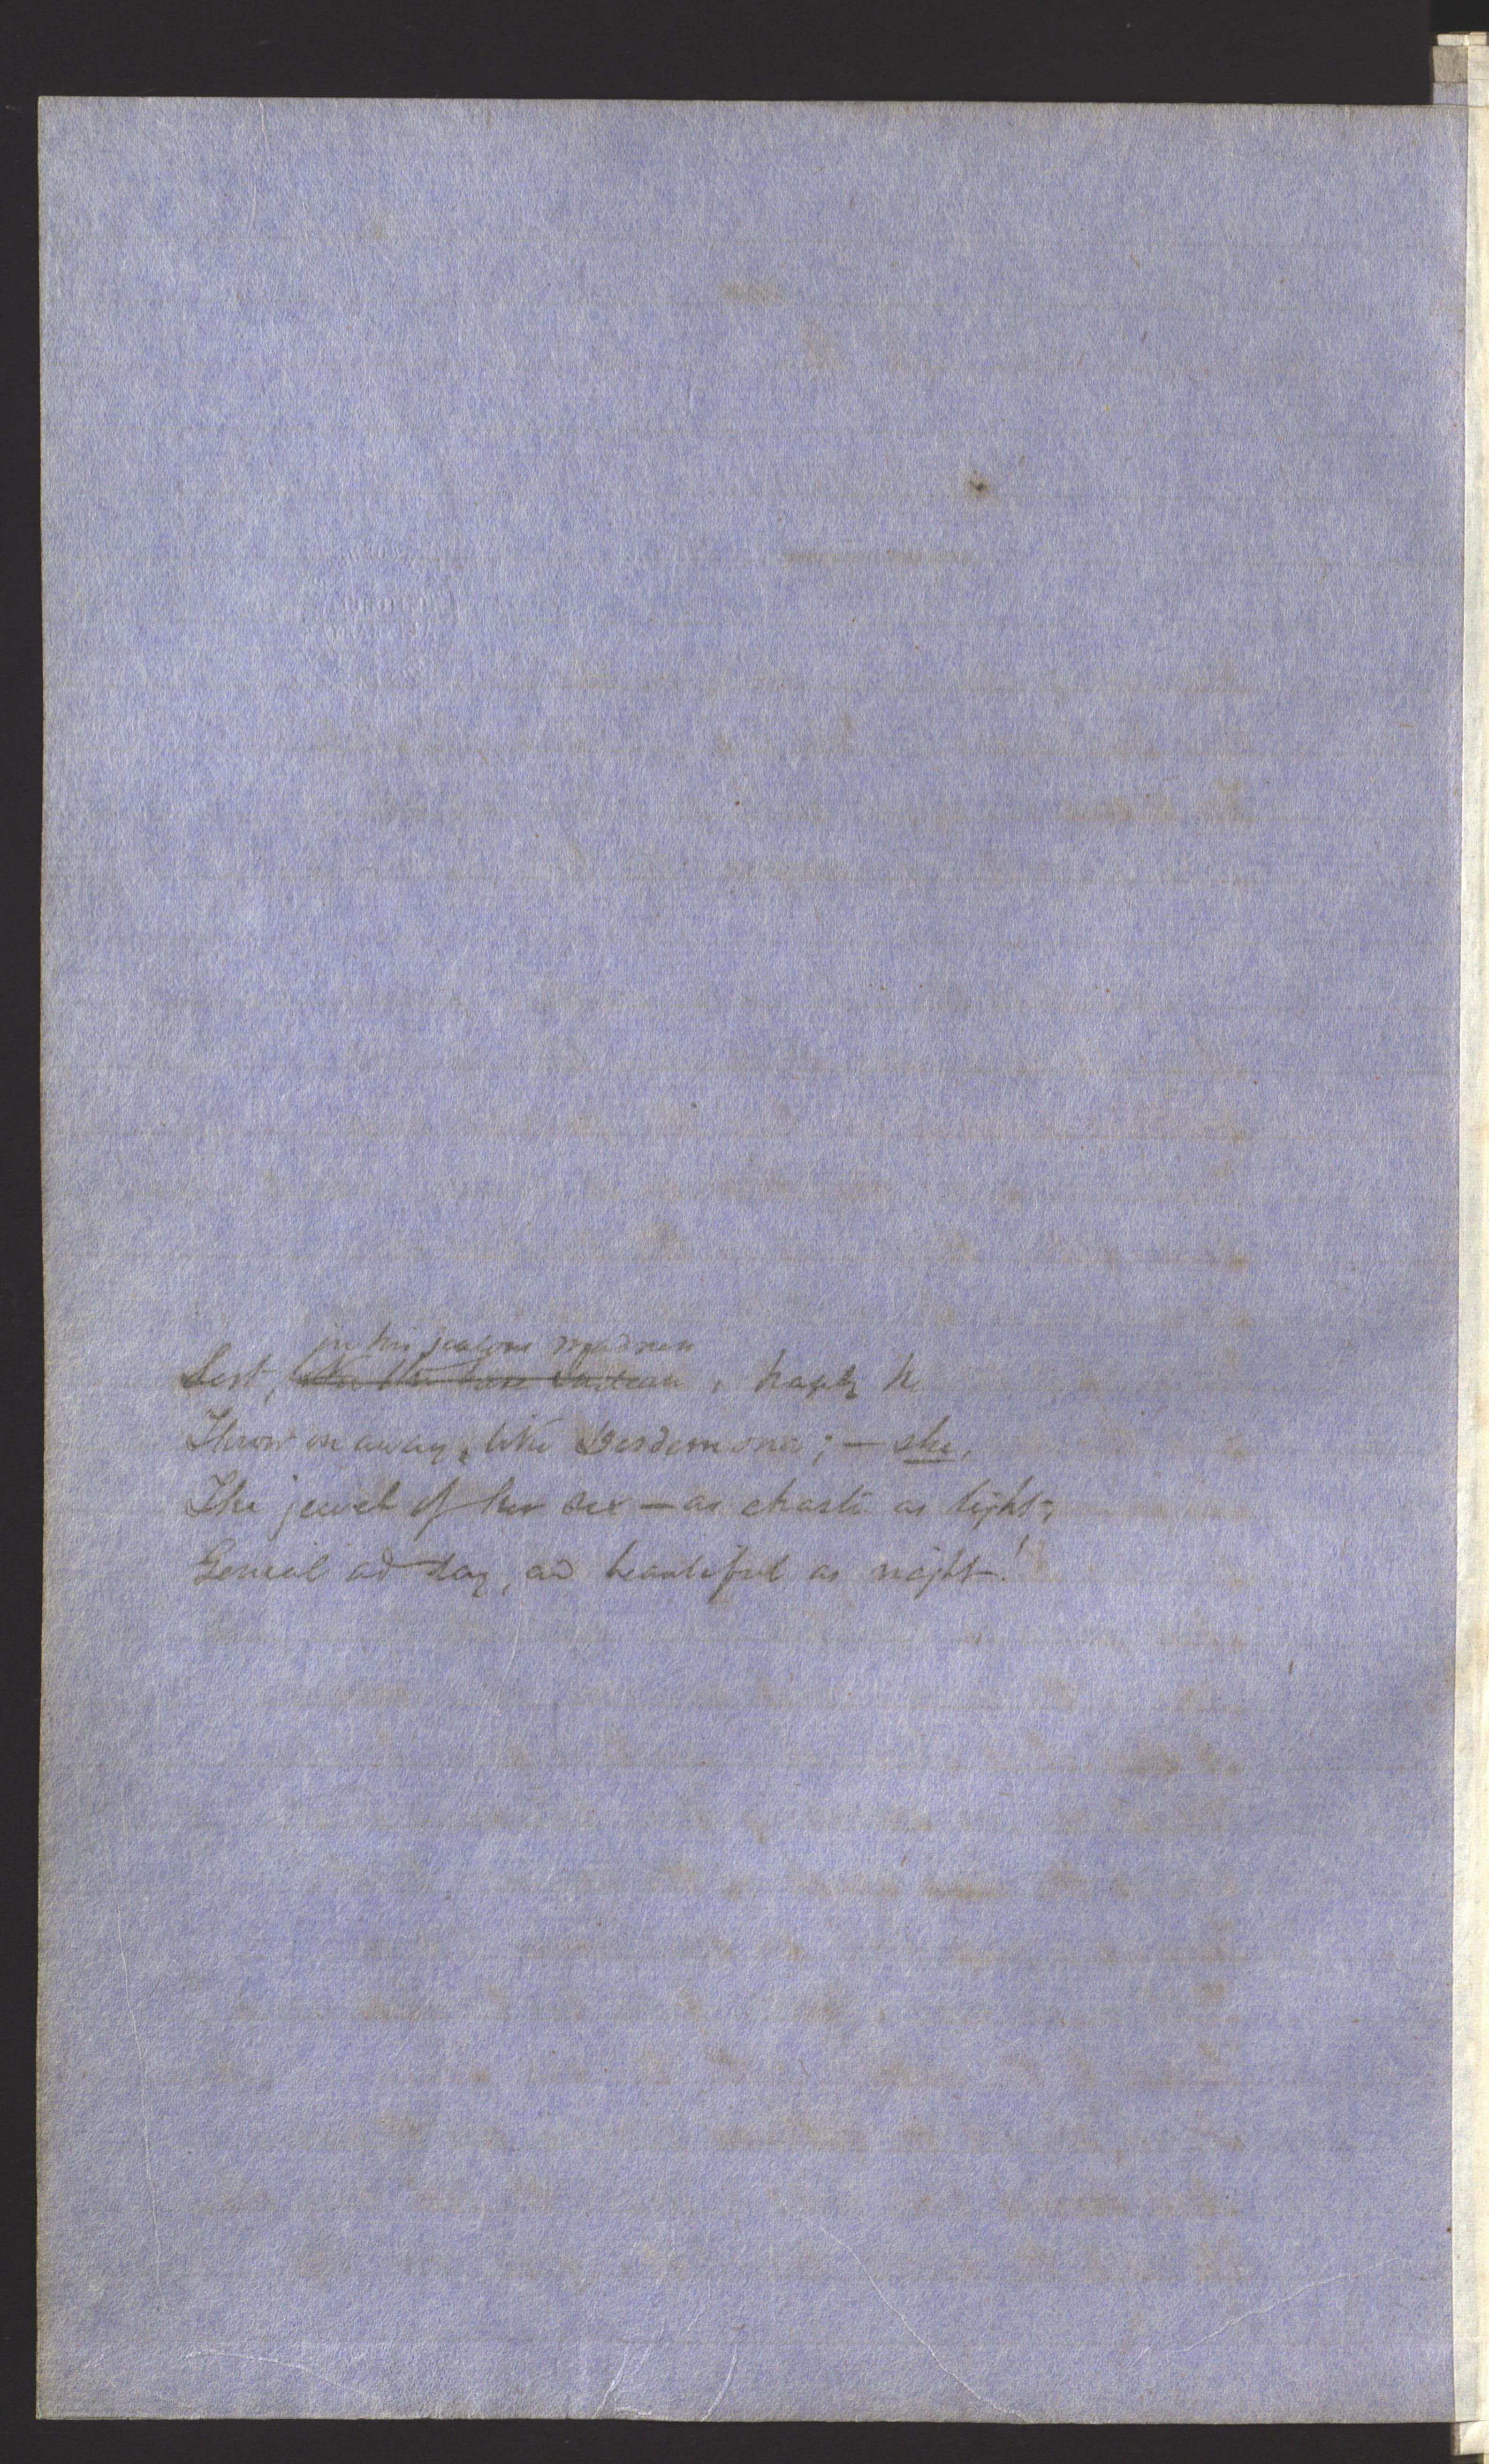 in his jealous madness
Lest, like the base Indian, haply he
Throw me away, like Desdemona; — she,
The jewel of her sex — as chaste as light,
Genial as day, and beautiful as night!